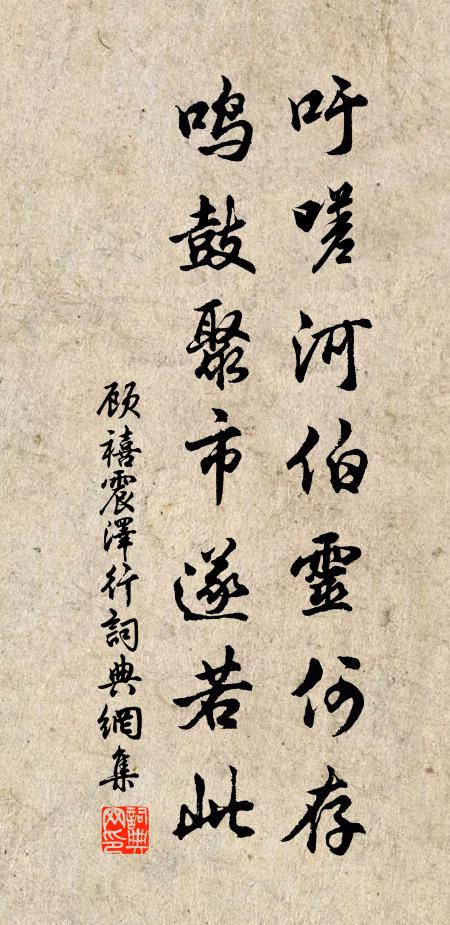 吁嗟河伯靈何存
鳴鼓聚市遂若此
顾禧震澤行詞典網集
詞典網印